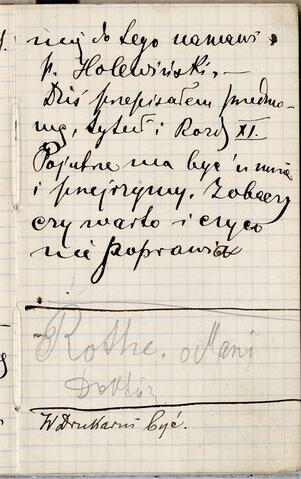 niej do tego namawi
p. Holewiński. –
Dziś przepisałem przedmo-
wę, tytuł i Rozdz XI.
Pojutrze ma być u mnie
i przejrzymy. Zobaczę
czy warto i czy co
nie poprawić
Rothe. o Mani
Doktór
W Drukarni być.